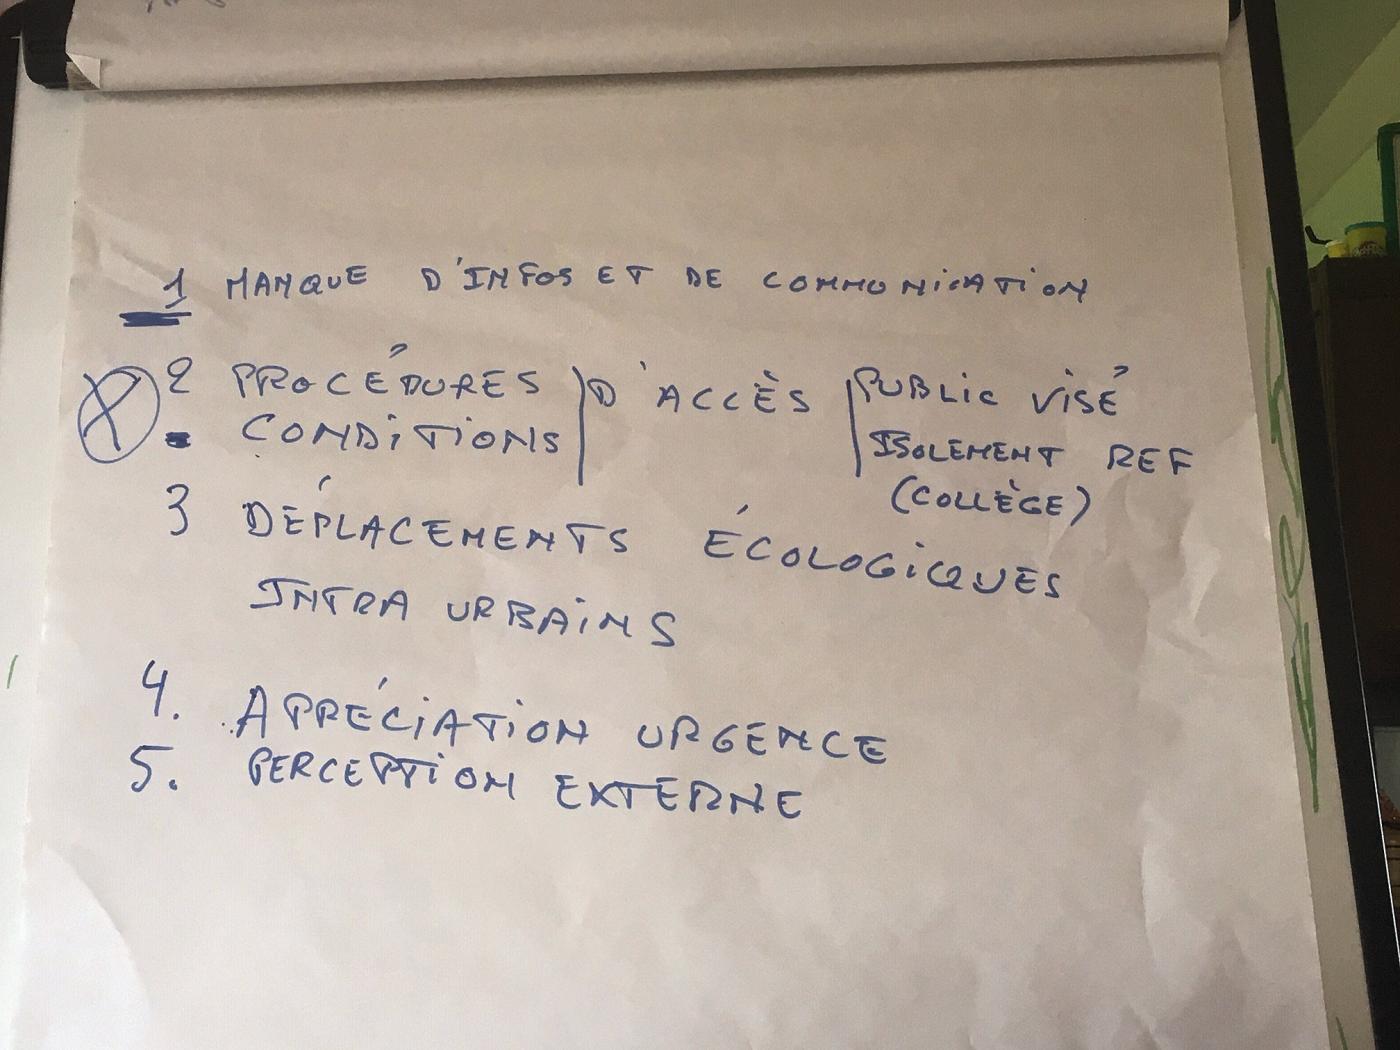 1 MANQUE D'INFOS ET DE COMMUNICATION
2 PROCÉDURES D'ACCÈS PUBLIC VISÉ
CONDITIONS ISOLEMENT REF
(COLLÈGE)
3 DÉPLACEMENTS ÉCOLOGIQUES
INTRA URBAINS
4. APPRÉCIATION URGENCE
5. PERCEPTION EXTERNE